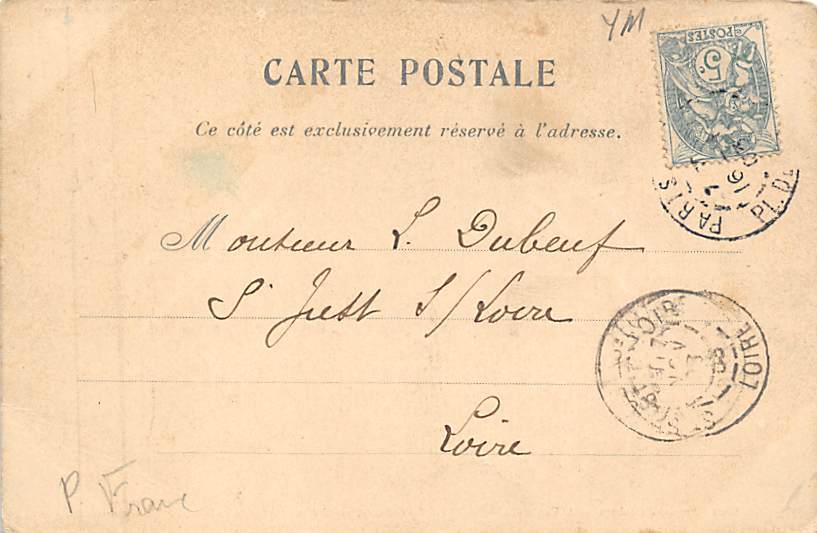 YM
POSTES
5c
CARTE POSTALE
Ce côté est exclusivement réservé à l'adresse.
PARIS
PL. DE
Monsieur L. Dubeuf
St Just S/Loire
LOIRE
Loire
P. Franc